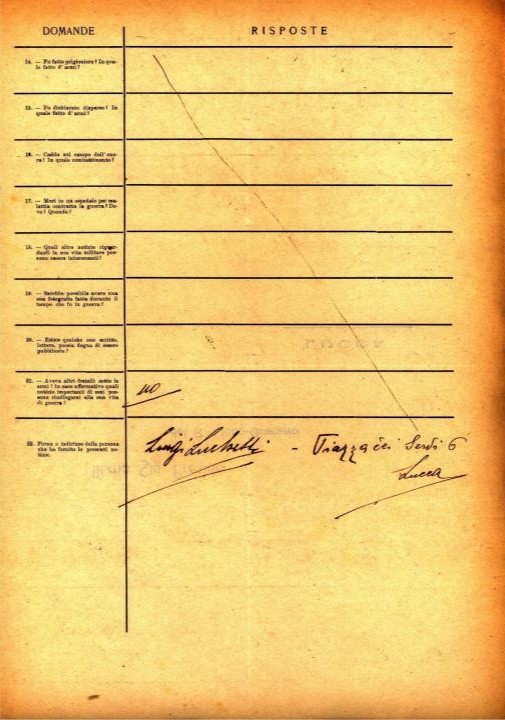 DOMANDE
RISPOSTE
14. — Fu fatto prigioniero? In qua-
le fatto d'armi?
15. — Fu dichiarato disperso? In
quale fatto d'armi?
16. — Cadde sul campo dell'ono-
re? In quale combattimento?
17. — Morì in un ospedale per ma-
lattia contratta in guerra? Do-
ve? Quando?
18. — Quali altre notizie riguar-
danti la sua vita militare pos-
sono essere interessanti?
19. — Sarebbe possibile avere una
sua fotografia fatta durante il
tempo che fu in guerra?
20. — Esiste qualche suo scritto,
lettera, poesia degna di essere
pubblicata?
21. — Aveva altri fratelli sotto le
armi? In caso affermativo quali
notizie importanti di essi pos-
sono ricollegarsi alla sua vita
di guerra?
no
22. Firma e indirizzo della persona
che ha fornito le presenti no-
tizie.
Luigi Luchetti - Piazza dei Servi 6
Lucca
LUCCA